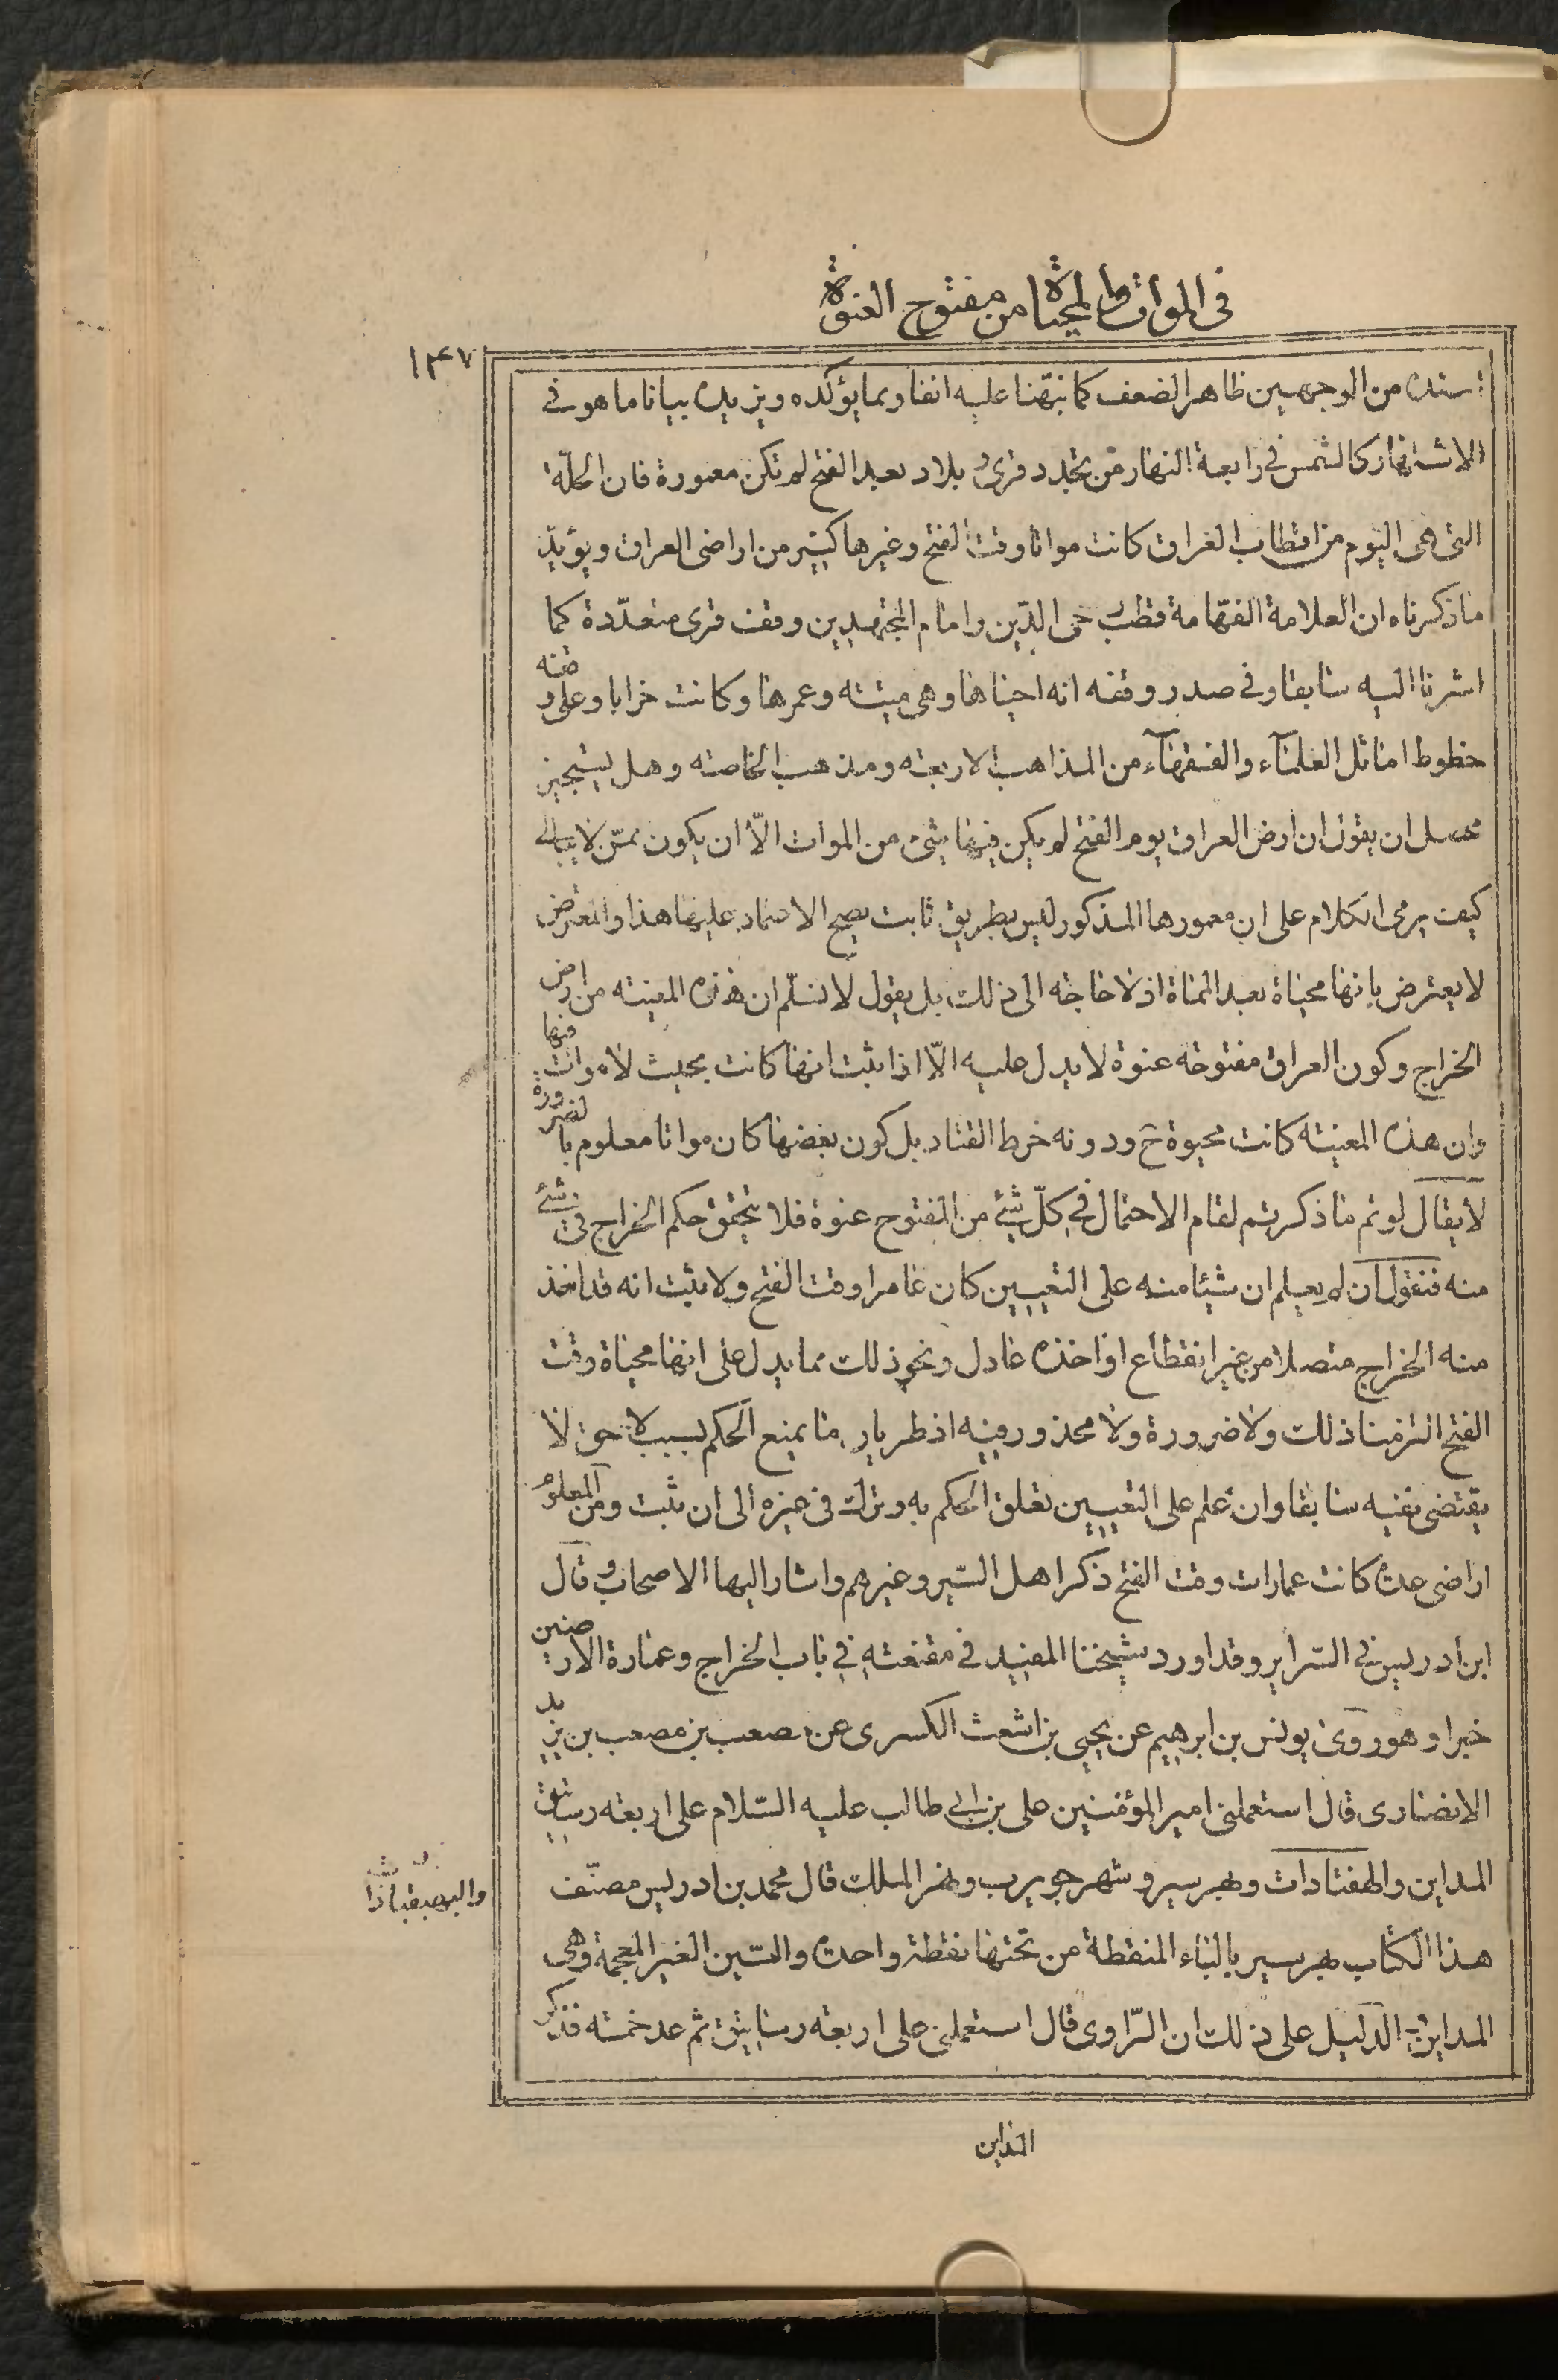 في الموات والمحياة من مفتوح العنوة
١٤٧
اسنده من الوجهين ظاهر الضعف كما نبّهنا عليه انفا ومما يؤكده ويزيده بيانا ما هو في
الاشتهار كالشمس في رابعة النهار من تجدد قرى و بلاد بعد الفتح لم تكن معمورة فان الحلّة
التي هي اليوم من اقطاب العراق كانت مواتا وقت الفتح وغيرها كثير من اراضى العراق ويؤيد
ما ذكرناه ان العلامة الفهّامة قطب رحى الدّين وامام المجتهدين وقف قرى متعدّدة كما
اشرنا اليه سابقا وفي صدر وقفه انه احياها وهى ميتته وعمرها وكانت خرابا وعلى وقفه
خطوط اماثل العلمآء والفقهآء من المذاهب الاربعته ومذهب الخاصته وهل يستجيز
محصل ان يقول ان ارض العراق يوم الفتح لم يكن فيها شئ من الموات الّا ان يكون ممّن لا يبالى
كيف يرمى الكلام على ان معمورها المذكور ليس بطريق ثابت يصح الاعتماد عليها هذا والمعترض
لا يعترض بانها محياة بعد المماة اذ لا حاجته الى ذلك بل يقول لا نسلّم ان هذه المعينته من ارض
الخراج وكون العراق مفتوحه عنوة لا يدل عليه الّا اذا ثبت انها كانت بحيث لا موات فيها
وان هذه المعينته كانت محيوة ح ودونه خرط القتاد بل كون بعضها كان مواتا معلوم بالضرورة
لا يقال لو تم ما ذكرتم لقام الاحتمال في كلّ شئ من المفتوح عنوة فلا يتحقق حكم الخراج في شئ
منه فنقول ان لم يعلم ان شيئا منه على التعيين كان عامرا وقت الفتح ولا ثبت انه قد اخذ
منه الخراج متصلا من غير انقطاع او اخذه عادل ونحو ذلك مما يدل على انها محياة وقت
الفتح التزمنا ذلك ولا ضرورة ولا محذور فيه اذ طريان ما يمنع الحكم لسبب لاحق لا
يقتضى نفيه سابقا وان علم على التعيين تعلق الحكم به وترك في غيره الى ان يثبت ومن المعلوم
اراضى عدة كانت عمارات وقت الفتح ذكرا هل السّير وغيرهم واشار اليها الاصحاب وقال
ابن ادريس في السّراير وقد اورد شيخنا المفيد في مقنعته في باب الخراج وعمارة الارضين
خبرا وهو روى يونس بن ابرهيم عن يحيى بن اشعث الكسرى عن مصعب بن مصعب بن يزيد
الانصارى قال استعملنى امير المؤمنين على بن ابى طالب عليه السّلام على اربعته رساتيق
المداين والهفتادات وبهر سير وشهر جويرب ونهر الملك قال محمد بن ادريس مصنّف
والبهقباذات
هذا الكتاب بهر سير بالباء المنقطة من تحتها نقطة واحدة والسّين الغير المعجمة وهى
المداين الدليل على ذلك ان الرّاوى قال استعملنى على اربعته رساتيق ثم عد خمسته فذكر
المداين